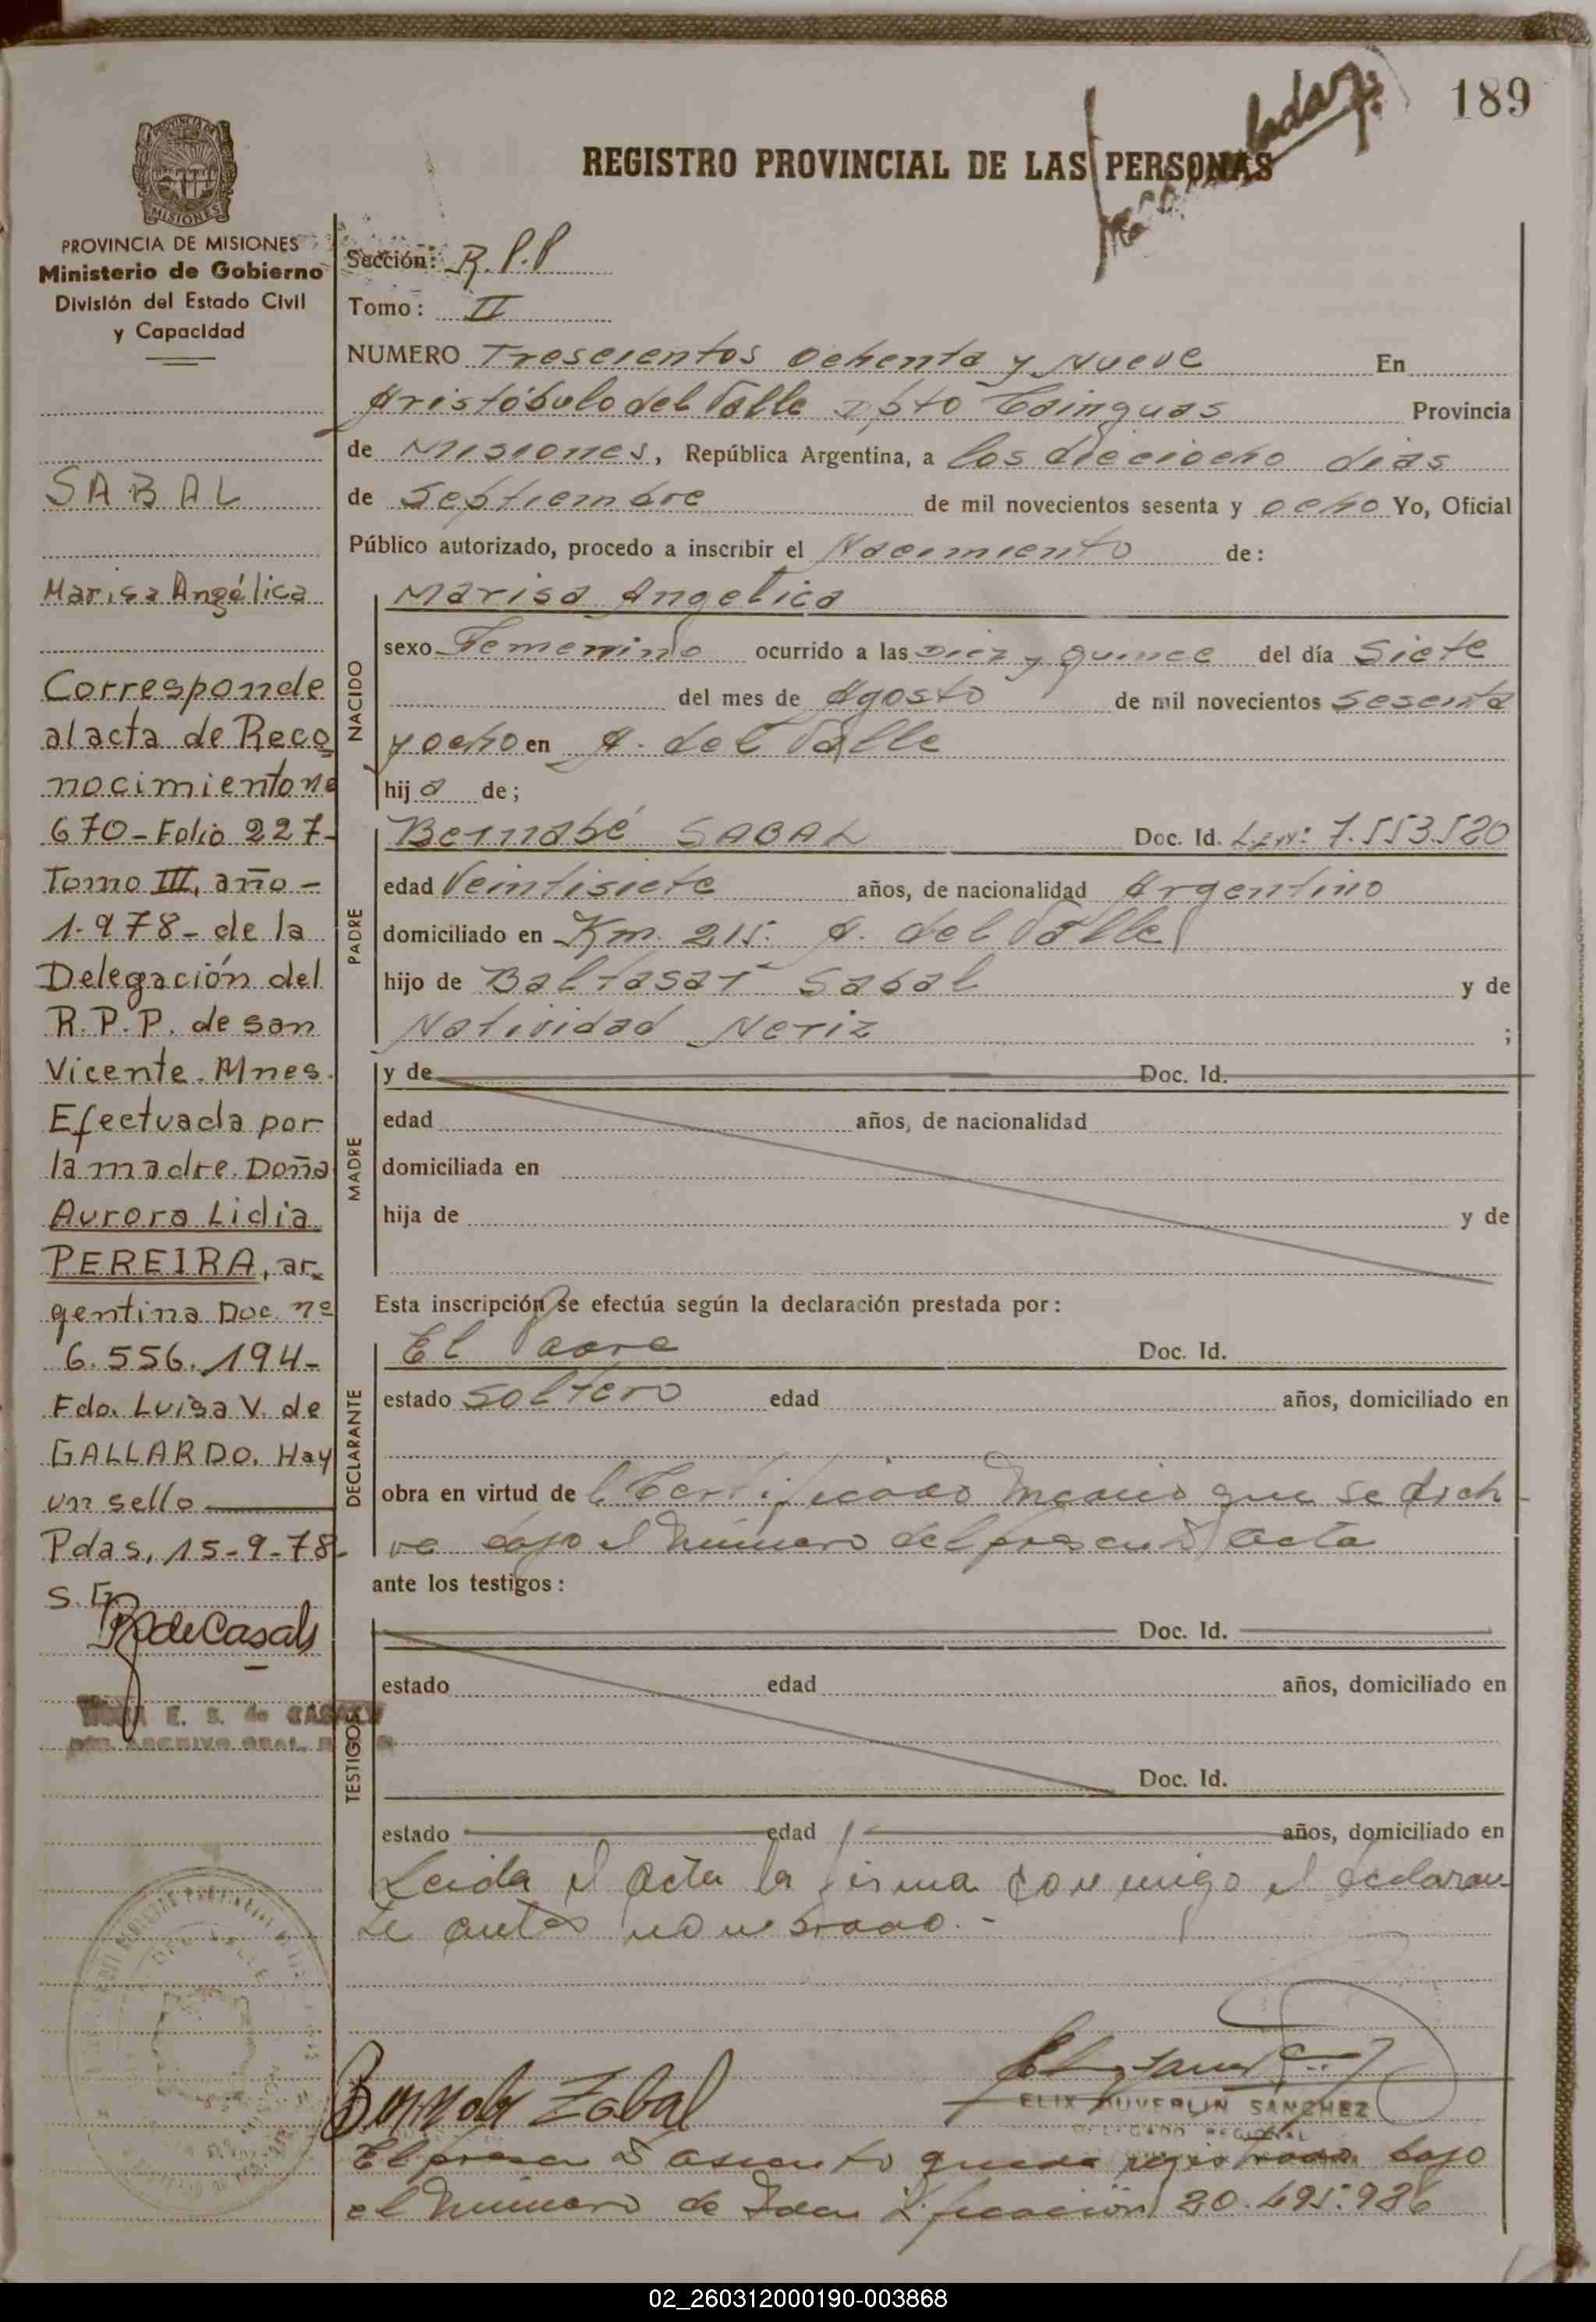 189
REGISTRO PROVINCIAL DE LAS PERSONAS
PROVINCIA DE
MISIONES
PROVINCIA DE MISIONES
Ministerio de Gobierno
División del Estado Civil
y Capacidad
SABAL
Marisa Angélica
Corresponde
al acta de Reco
nocimiento nº
670 - Folio 227-
Tomo III, año -
1.978 - de la
Delegación del
R.P.P. de san
Vicente. Mnes.
Efectuada por
la madre. Doña
Aurora Lidia
PEREIRA, ar.
gentina Doc. nº
6.556.194-
Fdo. Luisa V. de
GALLARDO. Hay
un sello
Pdas, 15-9-78-
S. G.
de Casals
E. S. de CASALS
Sección: R.P.P
Tomo: II
NUMERO Trescientos Ochenta y Nueve En
Aristóbulo del Valle Dpto Cainguas Provincia
de Misiones, República Argentina, a los dieciocho dias
de Septiembre de mil novecientos sesenta y ocho Yo, Oficial
Público autorizado, procedo a inscribir el Nacimiento de:
NACIDO
Marisa Angelica
sexo Femenino ocurrido a las Diez y quince del día Siete
del mes de Agosto de mil novecientos Sesenta
y ocho en A. del Valle
hij a de;
PADRE
Bernabé SABAL Doc. Id. L.E.Nº: 7.553.520
edad Veintisiete años, de nacionalidad Argentino
domiciliado en Km. 215. A. del Valle
hijo de Baltasar Sabal y de
Natividad Neriz ;
MADRE
y de Doc. Id.
edad años, de nacionalidad
domiciliada en
hija de y de
Esta inscripción se efectúa según la declaración prestada por:
DECLARANTE
El Padre Doc. Id.
estado Soltero edad años, domiciliado en
obra en virtud de l Certificado Medico que se Arch
va bajo el Número del presente acta
ante los testigos:
TESTIGOS
Doc. Id.
estado edad años, domiciliado en
Doc. Id.
estado edad años, domiciliado en
Leida el acta la firma conmigo el declaran-
te antes nombrado.-
Bernabe Zabal
ELIX DUVERLIN SANCHEZ
DELEGADO REGIONAL
El presente asiento queda registrado bajo
el Número de Identificación 20.495.926
02_260312000190-003868